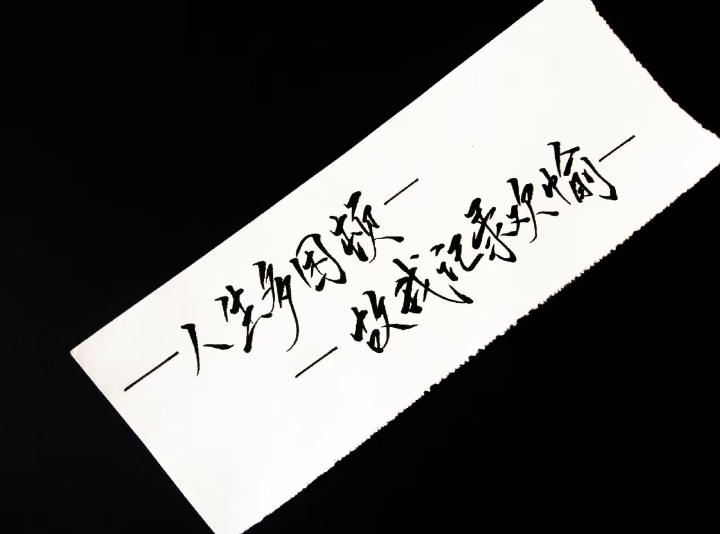 —人生多困顿—
—故我记录欢愉—